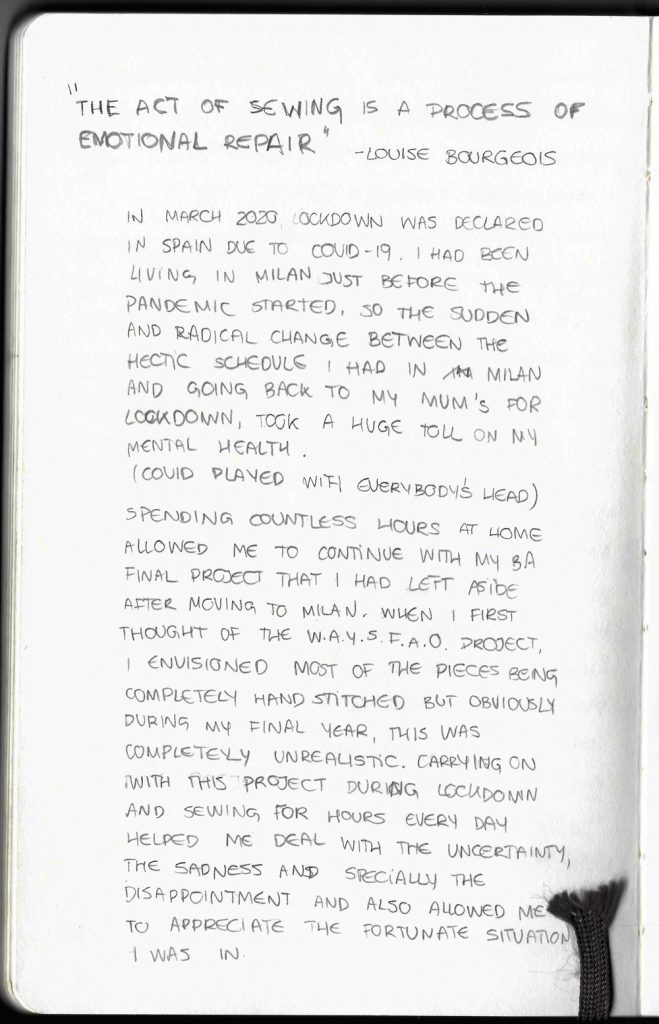 "THE ACT OF SEWING IS A PROCESS OF
EMOTIONAL REPAIR"
-LOUISE BOURGEOIS
IN MARCH 2020, LOCKDOWN WAS DECLARED
IN SPAIN DUE TO COVID-19. I HAD BEEN
LIVING IN MILAN JUST BEFORE THE
PANDEMIC STARTED, SO THE SUDDEN
AND RADICAL CHANGE BETWEEN THE
HECTIC SCHEDULE I HAD IN MILAN
AND GOING BACK TO MY MUM'S FOR
LOCKDOWN, TOOK A HUGE TOLL ON MY
MENTAL HEALTH.
(COVID PLAYED WITH EVERYBODY'S HEAD)
SPENDING COUNTLESS HOURS AT HOME
ALLOWED ME TO CONTINUE WITH MY BA
FINAL PROJECT THAT I HAD LEFT ASIDE
AFTER MOVING TO MILAN. WHEN I FIRST
THOUGHT OF THE W.A.Y.S.F.A.O. PROJECT,
I ENVISIONED MOST OF THE PIECES BEING
COMPLETELY HAND STITCHED BUT OBVIOUSLY
DURING MY FINAL YEAR, THIS WAS
COMPLETELY UNREALISTIC. CARRYING ON
WITH THIS PROJECT DURING LOCKDOWN
AND SEWING FOR HOURS EVERY DAY
HELPED ME DEAL WITH THE UNCERTAINTY,
THE SADNESS AND SPECIALLY THE
DISAPPOINTMENT AND ALSO ALLOWED ME
TO APPRECIATE THE FORTUNATE SITUATION
I WAS IN.